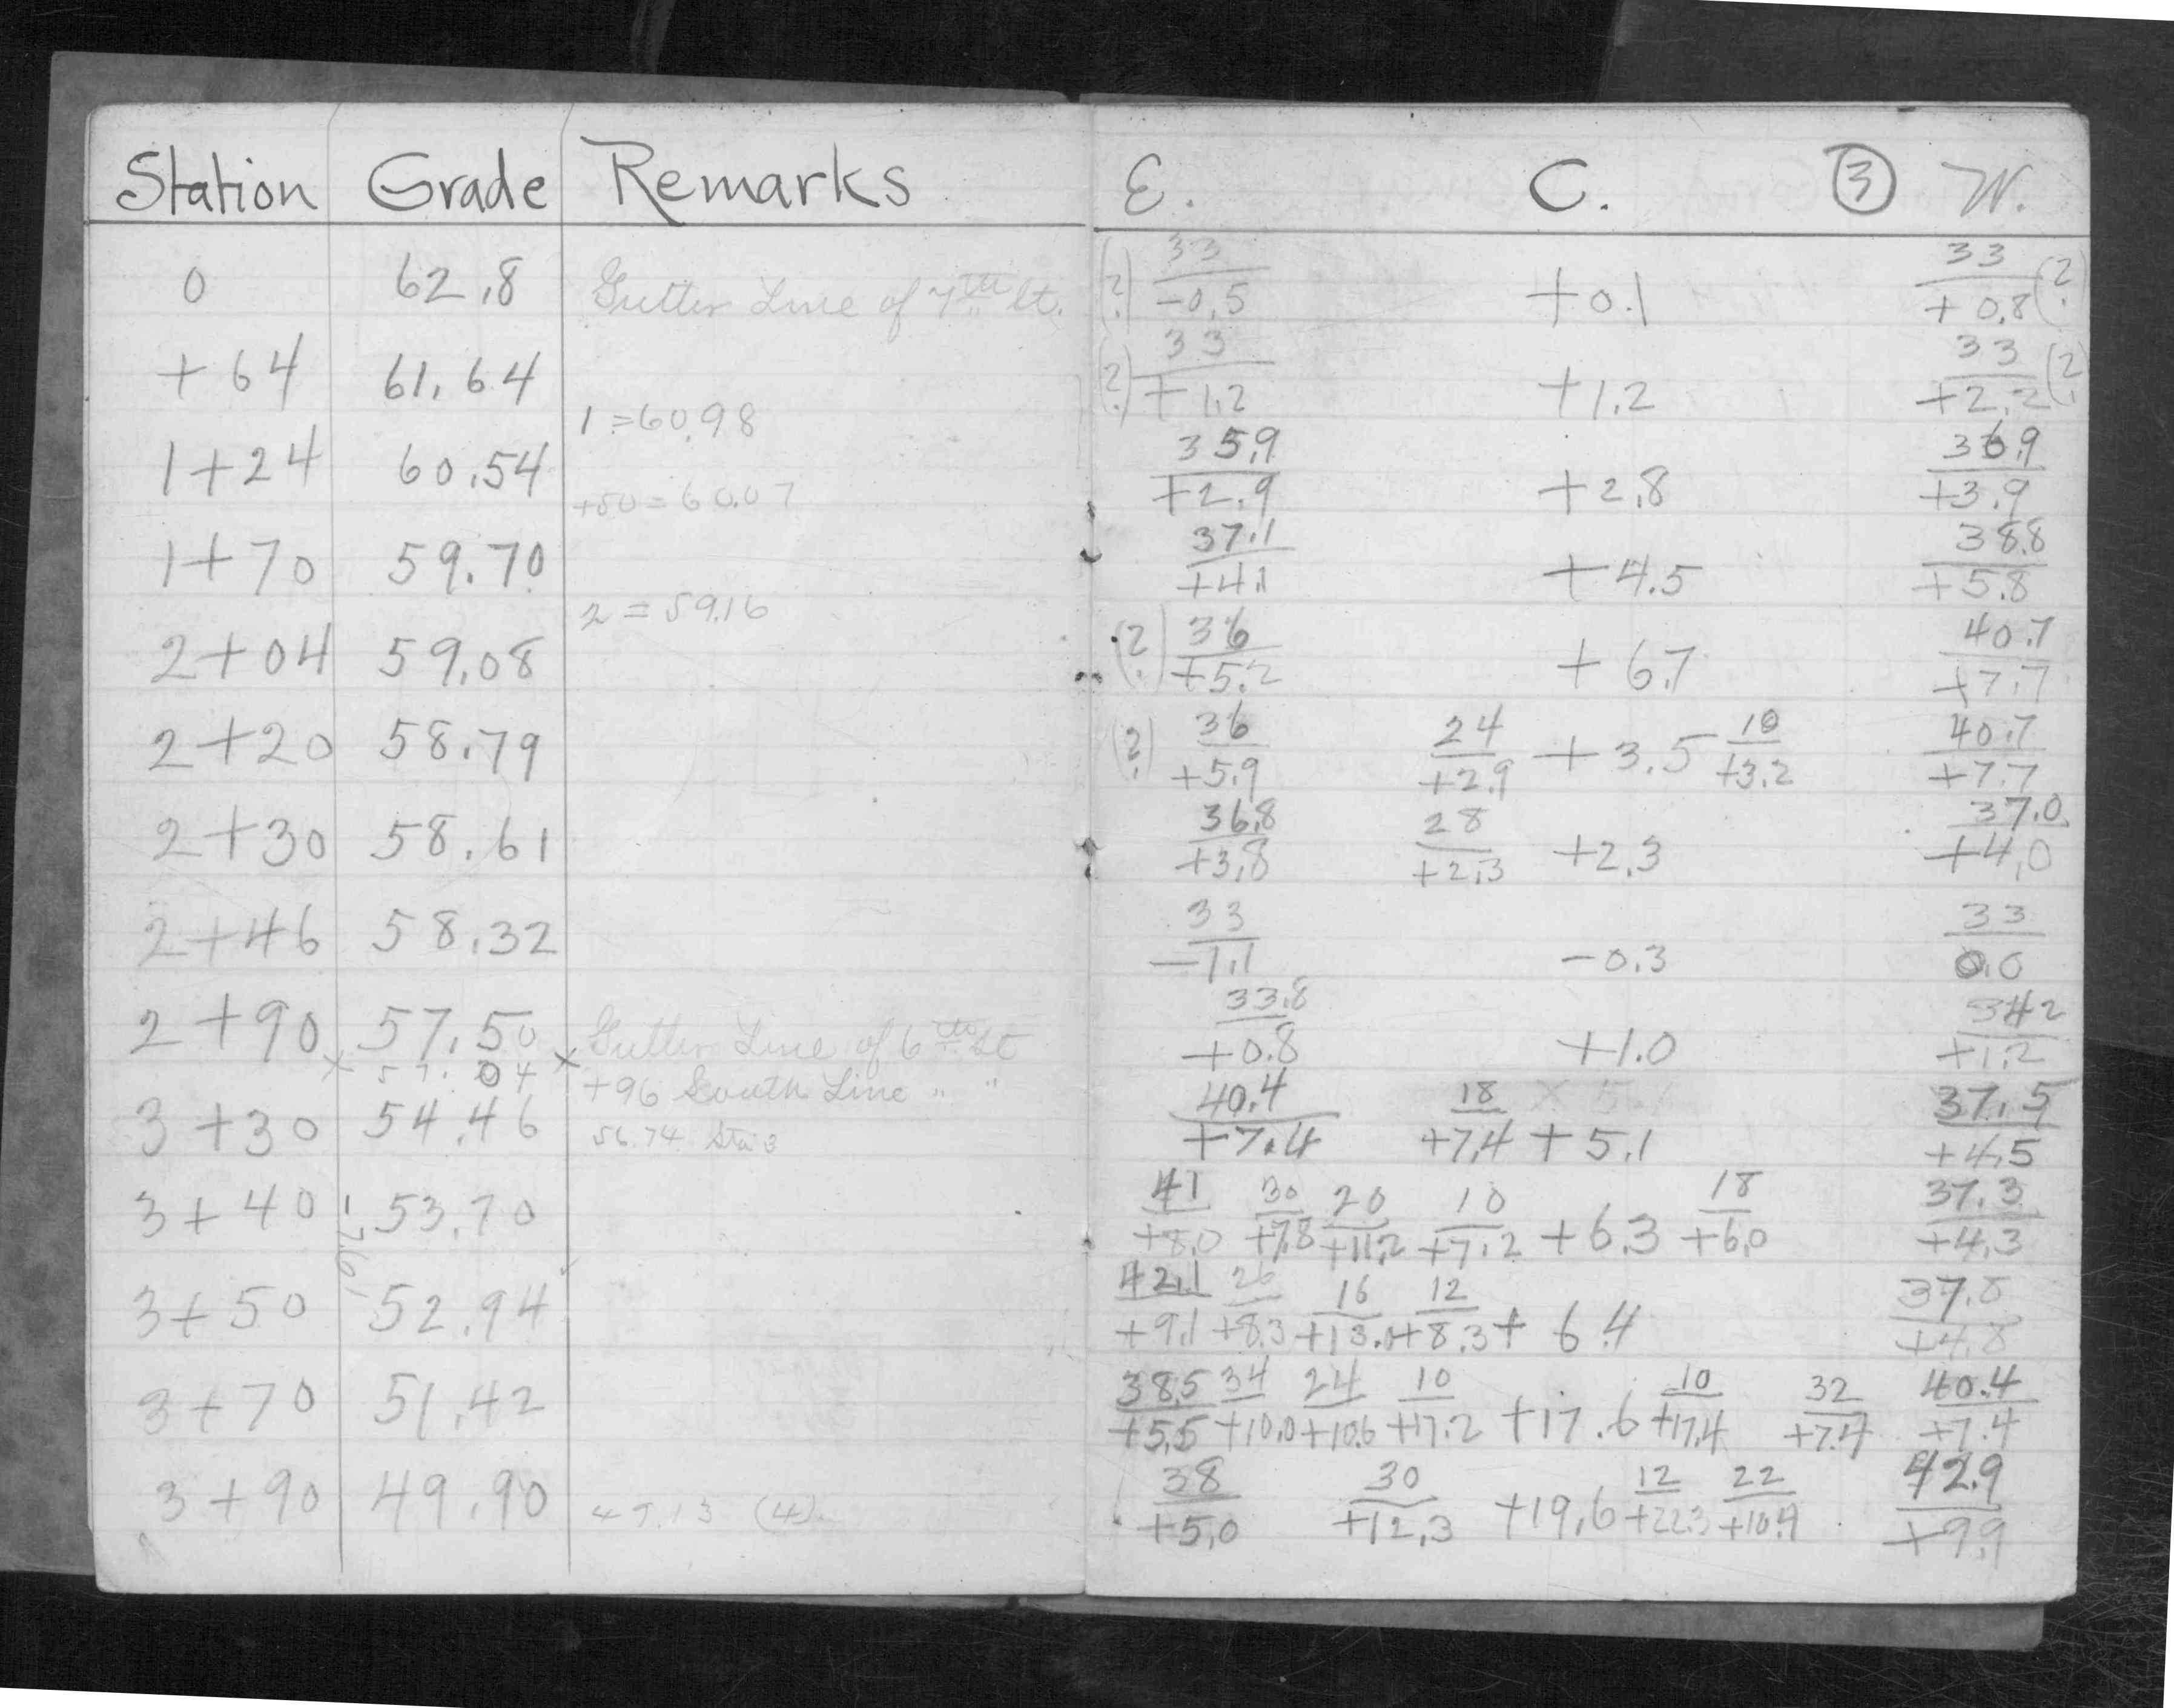 Station Grade Remarks E. C. ③ W.
0 62.8 Gutter Line of 7th St. (?) 33/-0.5 +0.1 33/+0.8 (?)
+64 61.64 (?) 33/+1.2 +1.2 33/+2.2 (?)
1 = 60.98
1+24 60.54 35.9/+2.9 +2.8 36.9/+3.9
+50 = 60.07
1+70 59.70 37.1/+4.1 +4.5 38.8/+5.8
2 = 59.16
2+04 59.08 (?) 36/+5.2 +6.7 40.7/+7.7
2+20 58.79 (?) 36/+5.9 24/+2.9 +3.5 10/+3.2 40.7/+7.7
2+30 58.61 36.8/+3.8 28/+2.3 +2.3 37.0/+4.0
2+46 58.32 33/-1.1 -0.3 33/0.0
2+90 57.50 Gutter Line of 6th St 33.8/+0.8 +1.0 34.2/+1.2
x 57.04 x +96 South Line " "
3+30 54.46 56.74 Sta 3 40.4/+7.4 18/+7.4 +5.1 37.5/+4.5
3+40 53.70 41/+8.0 30/+7.8 20/+11.2 10/+7.2 +6.3 18/+6.0 37.3/+4.3
-7.61
3+50 52.94 42.1/+9.1 26/+8.3 16/+13.0 12/+8.3 +6.4 37.8/+4.8
3+70 51.42 38.5/+5.5 34/+10.0 24/+10.6 10/+17.2 +17.6 10/+17.4 32/+7.4 40.4/+7.4
3+90 49.90 49.13 (4) 38/+5.0 30/+12.3 +19.6 12/+22.3 22/+10.9 42.9/+9.9